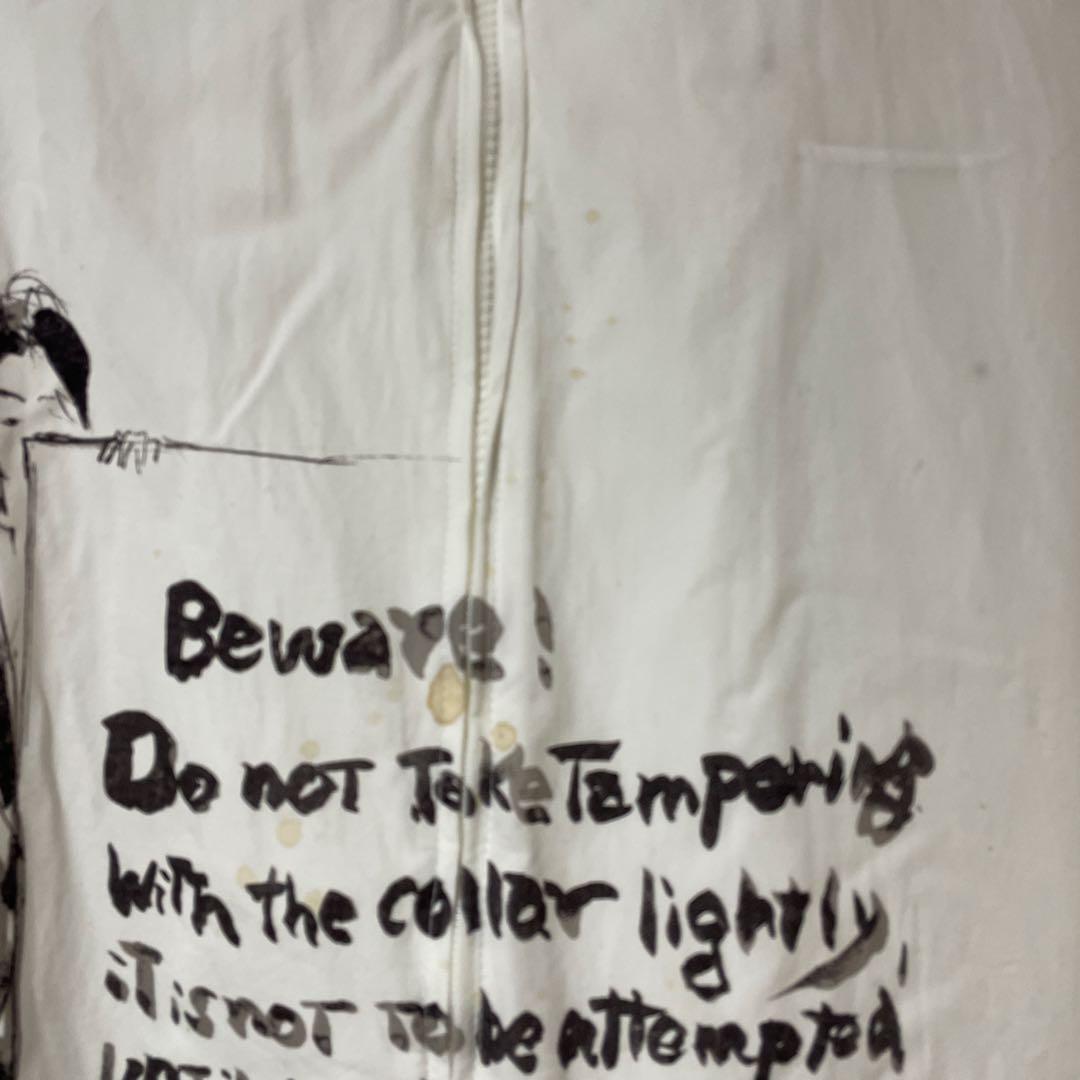 Beware!
Do not Take Tampering
with the collar lightly,
it is not to be attempted
until